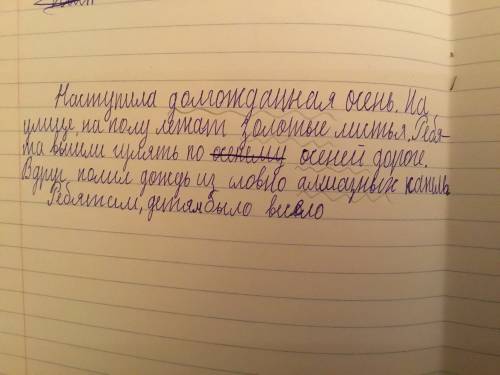 Наступила долгожданная осень. На
улице, на полу лежат золотые листья. Ребя-
та вышли гулять по осеней дороге.
Вдруг полил дождь из словно алмазных капиль
Ребятам, детям было весело